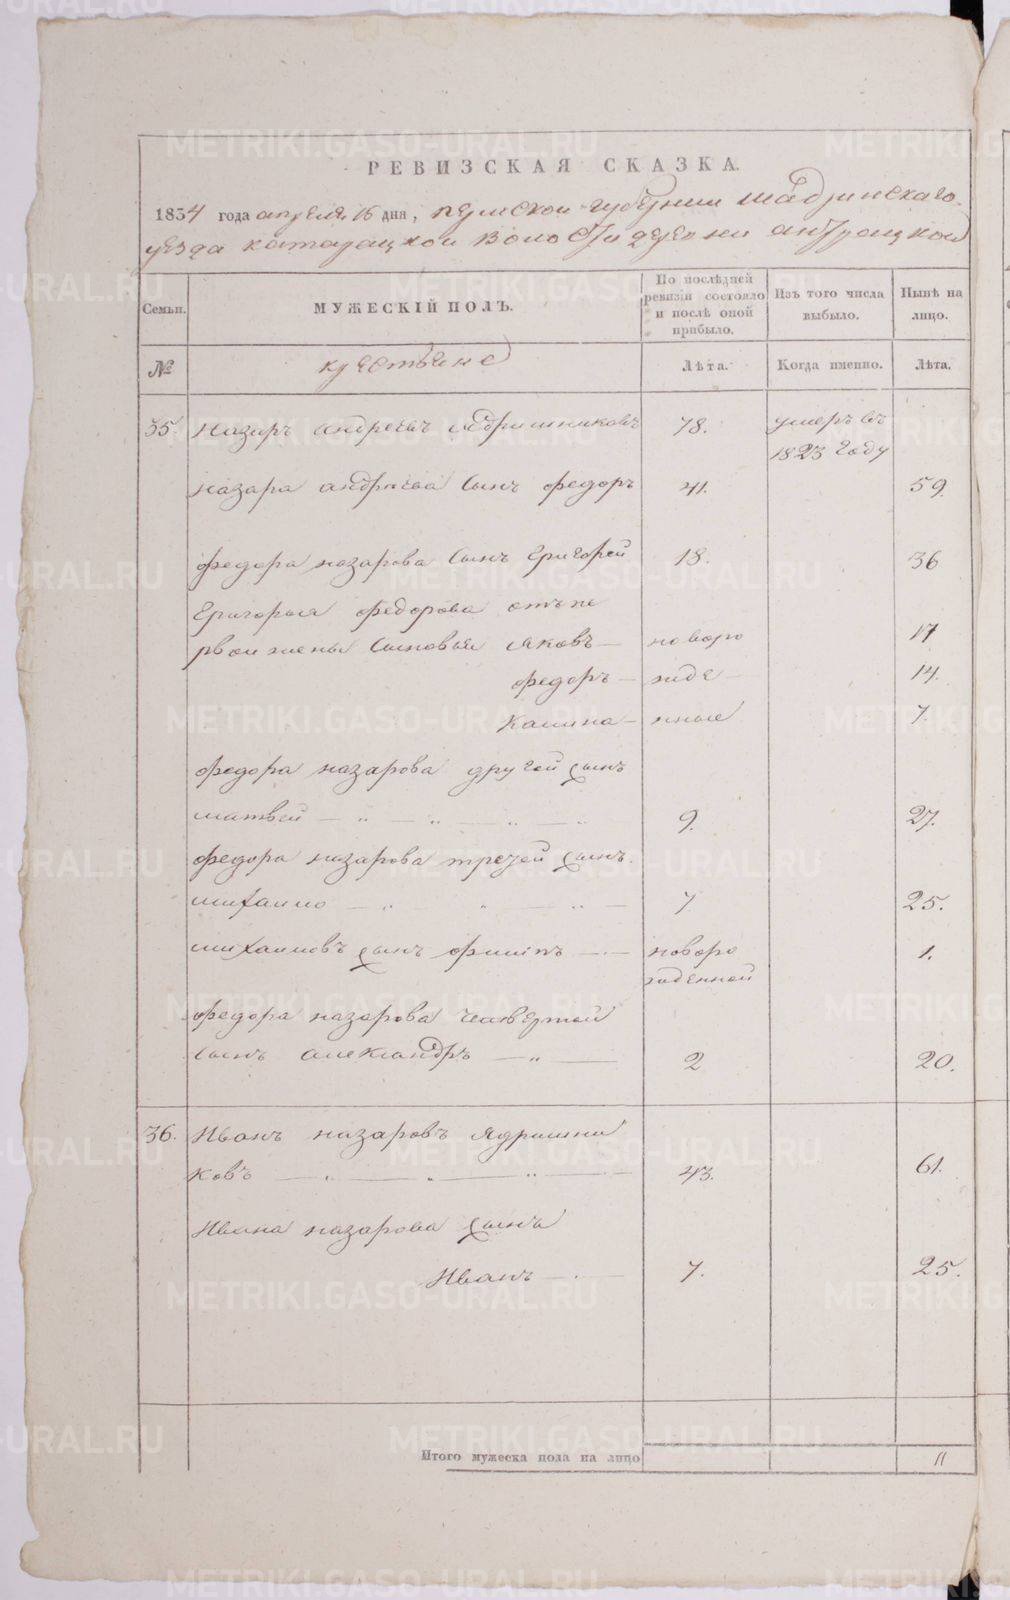 РЕВИЗСКАЯ СКАЗКА.
1834 года апреля 16 дня, пермской губернии шадринскаго
уезда катарацкой волости деревни
Семьи.
МУЖЕСКІЙ ПОЛЪ.
По послѣдней ревизіи состояло и послѣ оной прибыло.
Изъ того числа выбыло.
Нынѣ на лицо.
№
крестьяне
Лѣта.
Когда именно.
Лѣта.
35 назаръ андреевъ ядришниковъ 78. умеръ въ
1823 году
назара андреева сынъ федоръ 41. 59.
федора назарова сынъ григорей 18. 36
григорья федорова отъ пе
рвои жены сыновья яковъ — новоро 17
федоръ — жде — 14.
калина — нные 7.
федора назарова другой сынъ
матвей — „ — „ — „ — „ 9. 27.
федора назарова третей сынъ.
михаило — „ — „ — „ — 7 25.
михаиловъ сынъ филипъ — новоро 1.
жденной
федора назарова четвертой
сынъ александръ — „ — 2 20.
36. Иванъ назаровъ ядришни
ковъ — „ — „ — „ — 43. 61.
Ивана назарова сынъ
Иванъ — 7. 25.
Итого мужеска пола на лицо 11
METRIKI.GASO-URAL.RU